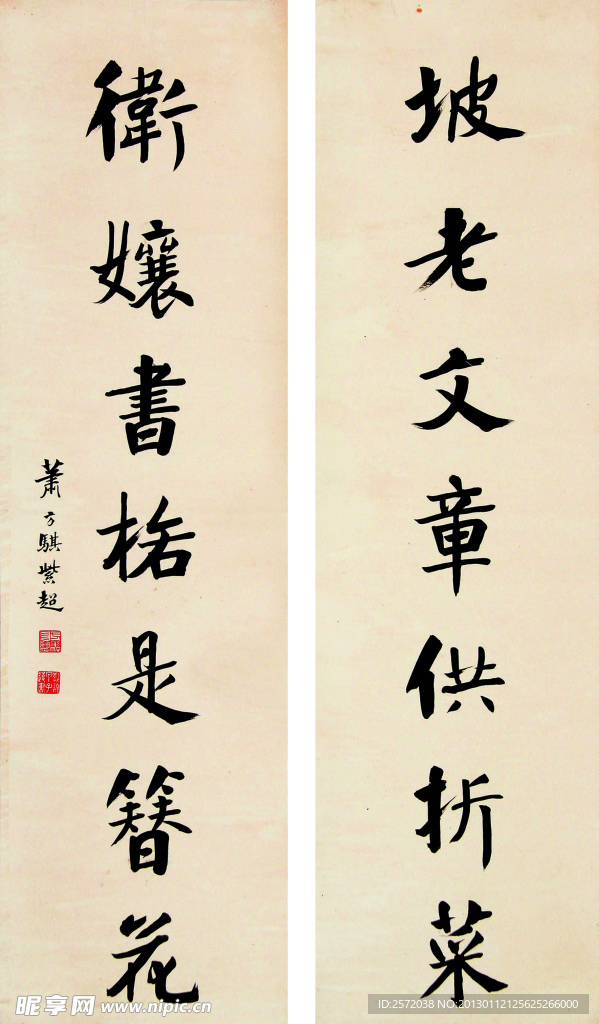 坡老文章供折菜
衛孃書楷是簪花
蕭方騏紫超
昵享网 www.nipic.cn
ID:2572038 NO:20130112125625266000